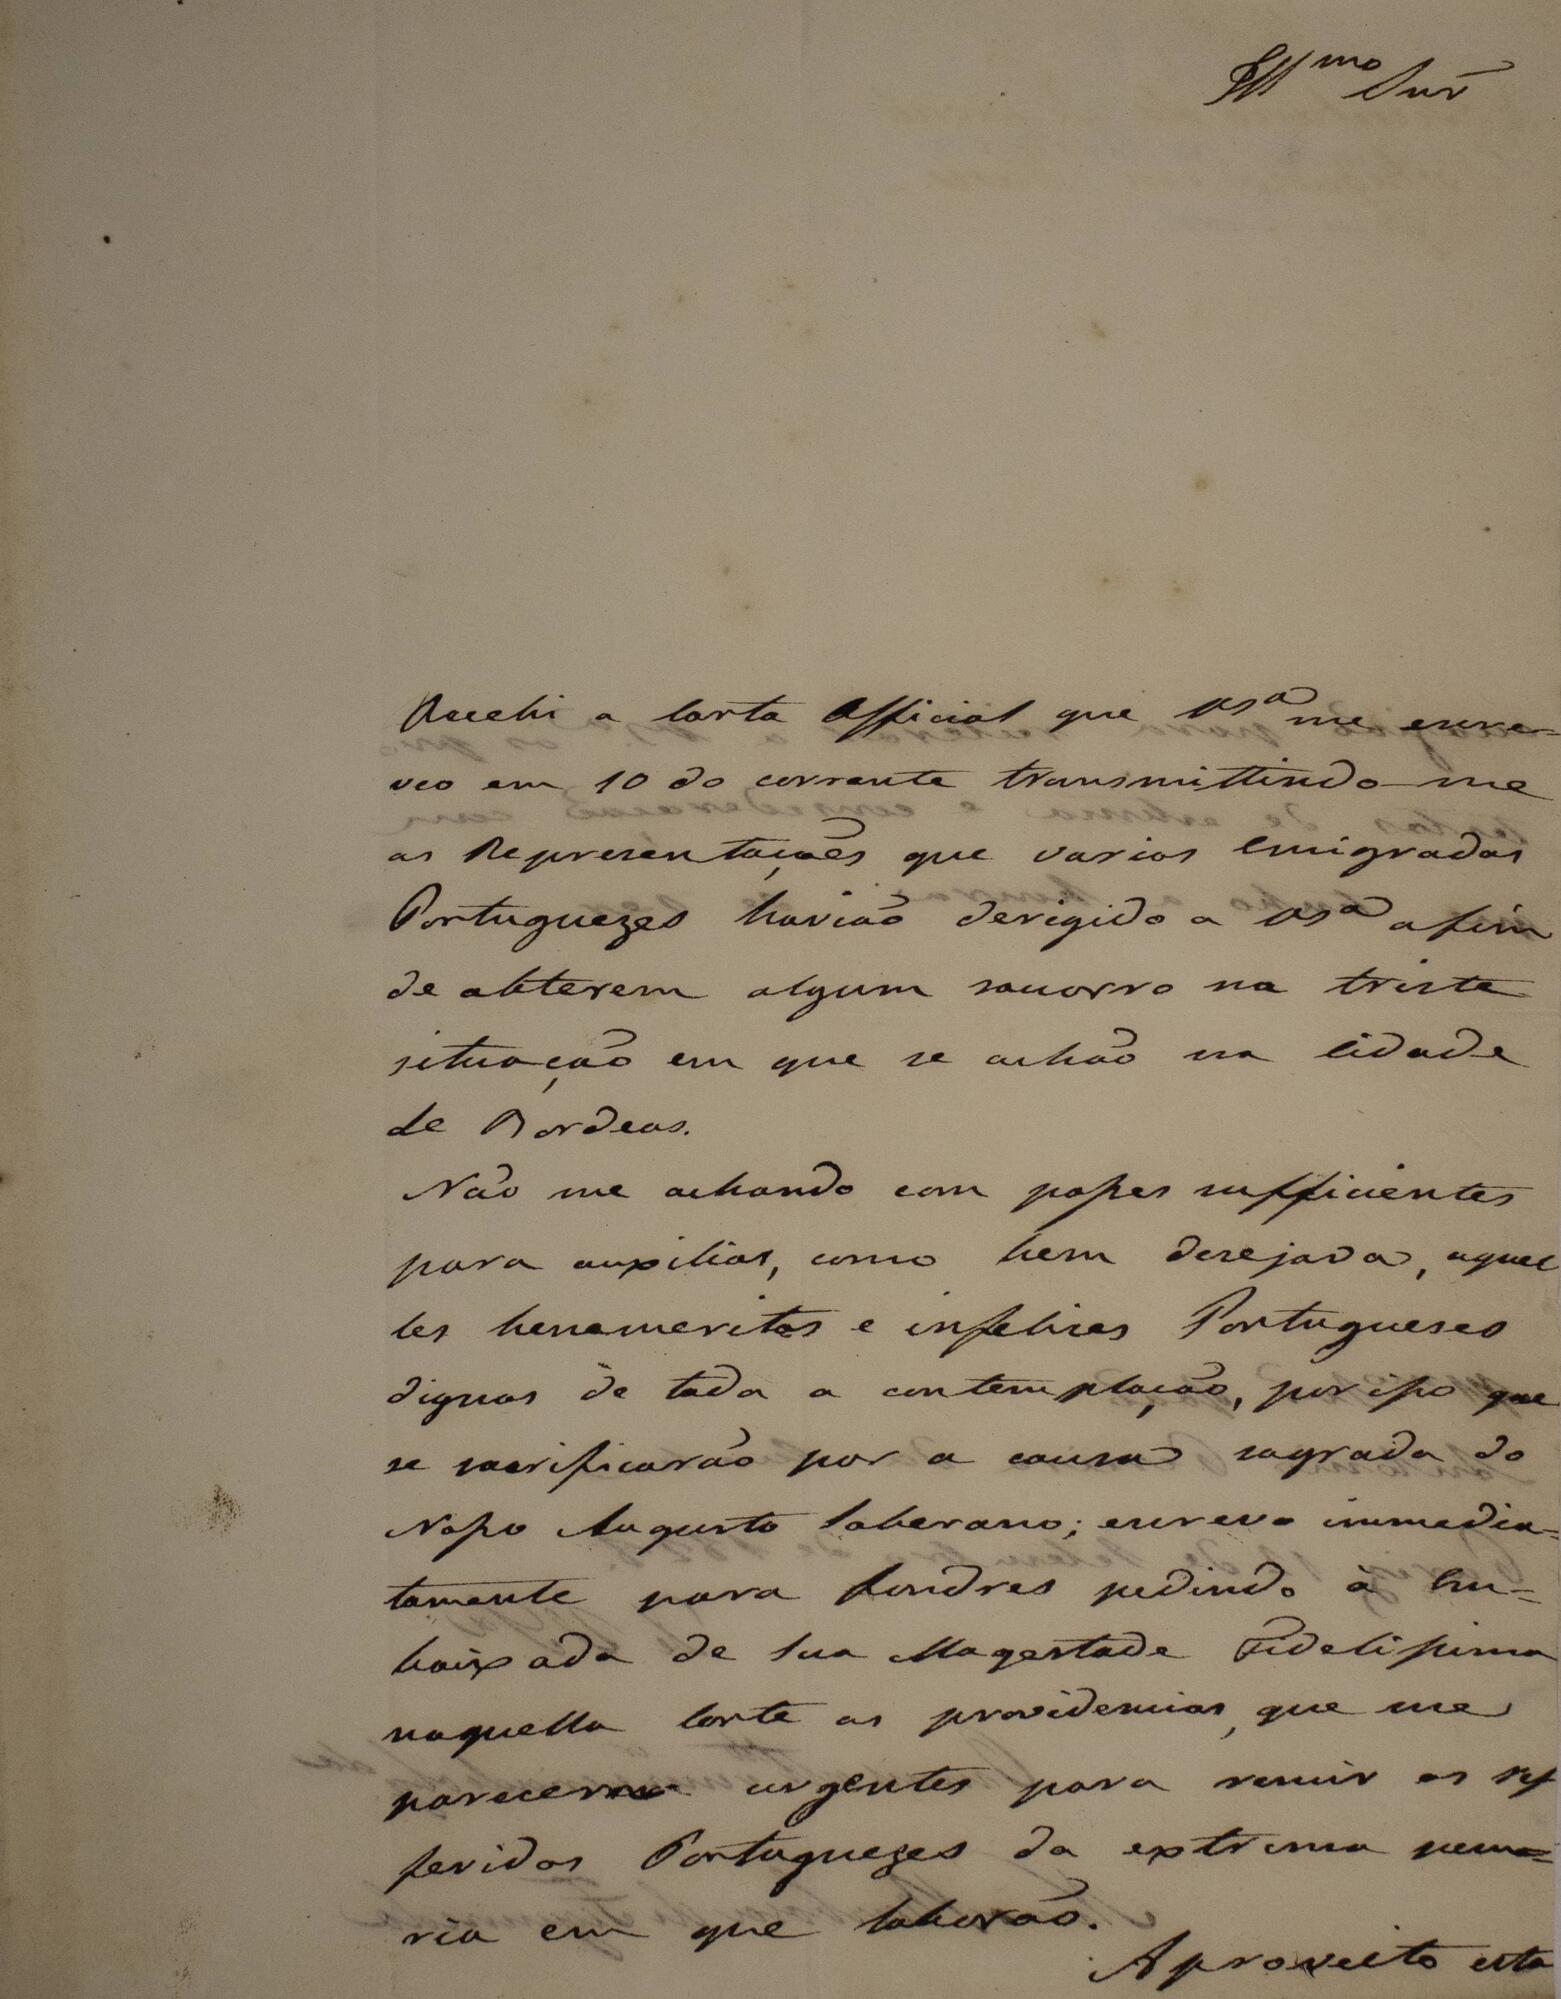 Illmo Snr
Recebi a Carta Official que VSa me escre-
veo em 10 do corrente transmittindo-me
as Representações que varios Emigrados
Portuguezes havião derigido a VSa a fim
de obterem algum socorro na triste
situação em que se achão na Cidade
de Bordeos.
Não me achando com posses sufficientes
para auxilios, como bem desejava, aquel
les benemeritos e infelises Portugueses
dignos de toda a contemplação, por isso que
se sacrificarão por a causa sagrada do
Nosso Augusto Soberano; escrevo immedia-
tamente para Londres pedindo à Em-
baixada de Sua Magestade Fidelissima
naquella Corte as providencias, que me
parecem urgentes para remir os ref
feridos Portuguezes da extrema penu-
ria em que laborão.
Aproveito esta